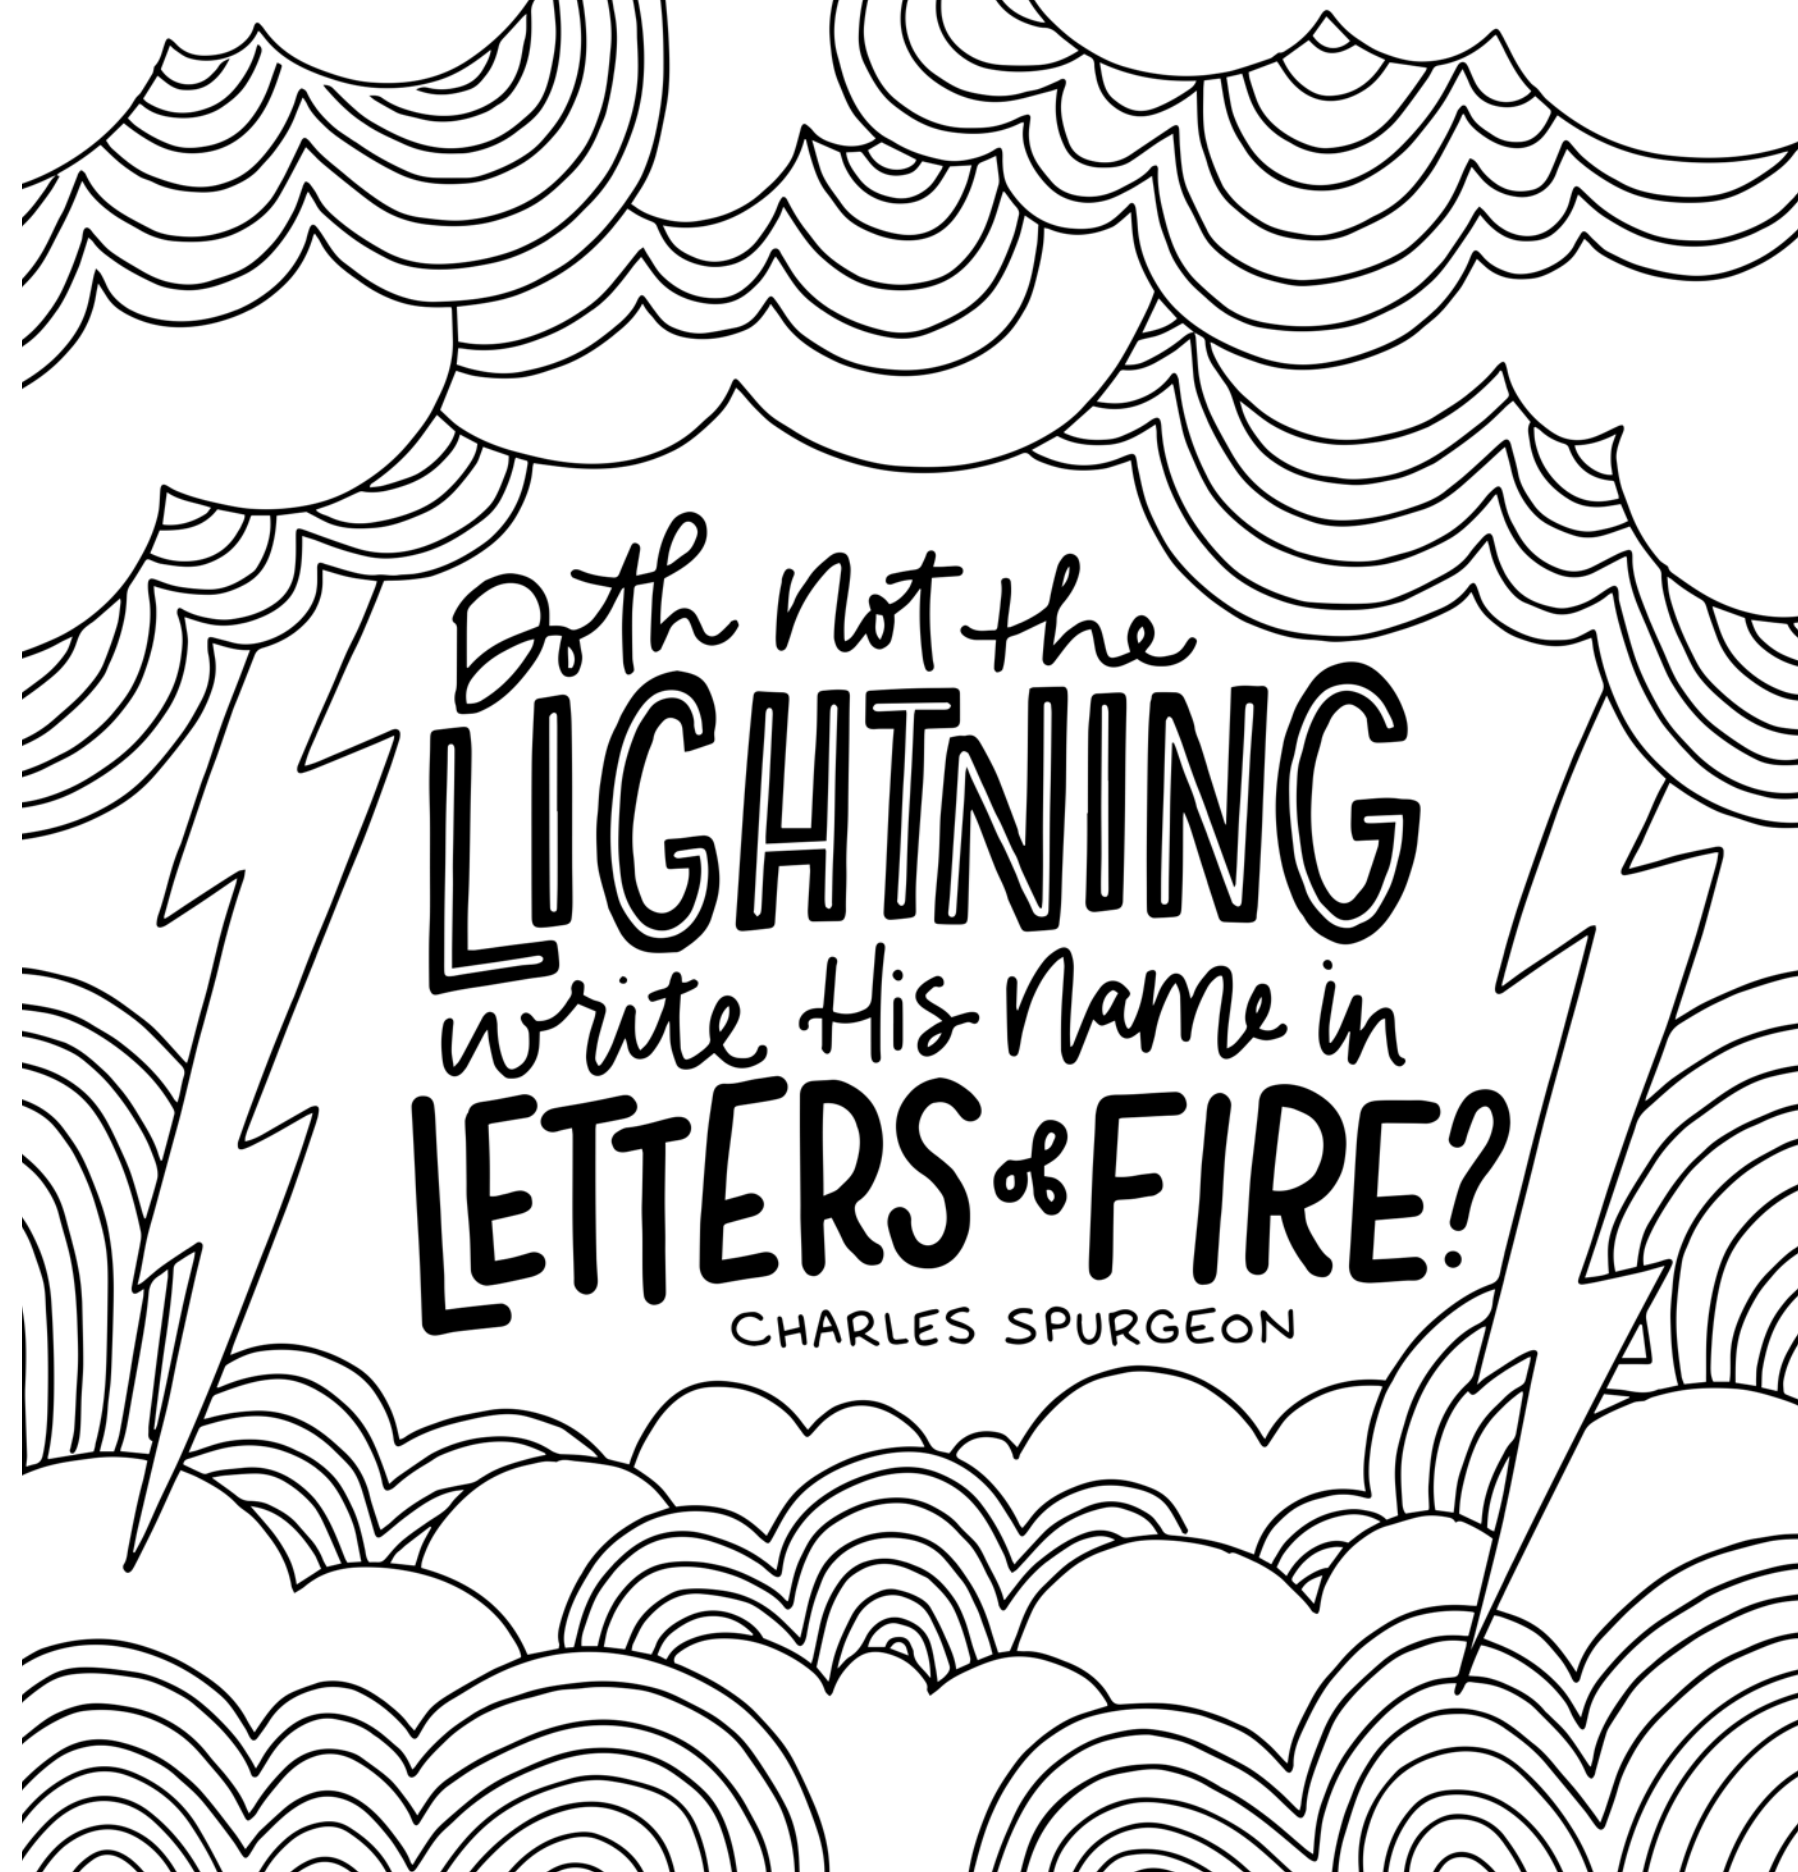 Doth not the
LIGHTNING
write His name in
LETTERS of FIRE?
CHARLES SPURGEON